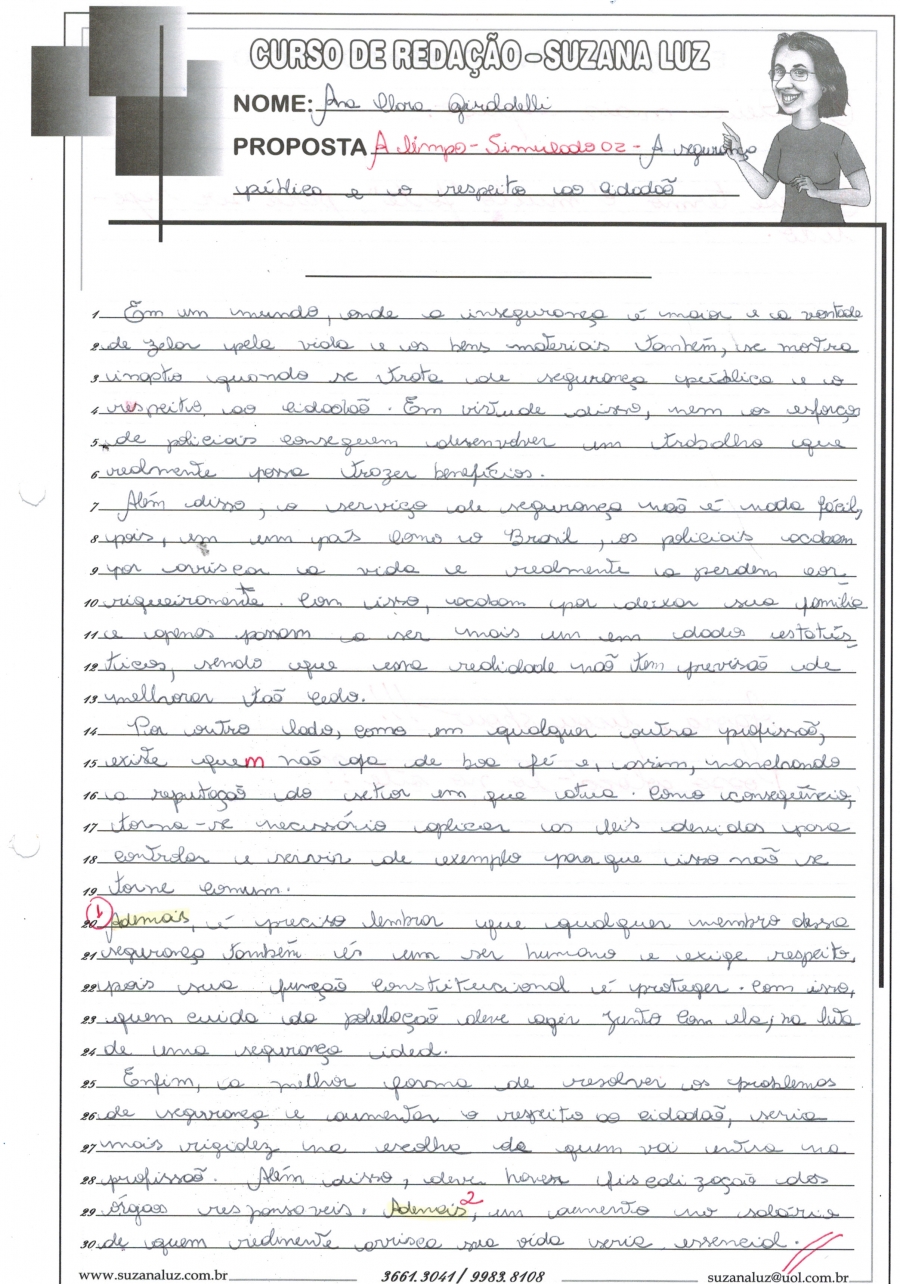 CURSO DE REDAÇÃO - SUZANA LUZ
NOME: Ana Clara Giraldelli
PROPOSTA A limpo - Simulado 02 - A segurança
pública e o respeito ao cidadão
1 Em um mundo, onde a insegurança é maior e a vontade
2 de zelar pela vida e os bens materiais também, se mostra
3 inapto quando se trata de segurança pública e o
4 respeito ao cidadão. Em virtude disso, nem os esforços
5 de policiais conseguem desenvolver um trabalho que
6 realmente possa trazer benefícios.
7 Além disso, o serviço de segurança não é nada fácil,
8 pois, em um país como o Brasil, os policiais acabam
9 por arriscar a vida e realmente a perdem cor
10 riqueiramente. Com isso, acabam por deixar sua família
11 e apenas passam a ser mais um em dados estatís
12 ticos, sendo que essa realidade não tem previsão de
13 melhorar tão cedo.
14 Por outro lado, como em qualquer outra profissão,
15 existe quem não aja de boa fé e, assim, manchando
16 a reputação do setor em que atua. Como consequência,
17 torna-se necessário aplicar as leis devidas para
18 controlar e servir de exemplo para que isso não se
19 torne comum.
1
20 Ademais, é preciso lembrar que qualquer membro dessa
21 segurança também és um ser humano e exige respeito,
22 pois sua função constitucional é proteger. Com isso,
23 quem cuida da população deve agir junto com ela, na luta
24 de uma segurança ideal.
25 Enfim, a melhor forma de resolver os problemas
26 de segurança e aumentar o respeito ao cidadão, seria
27 mais rigidez na escolha de quem vai entra na
28 profissão. Além disso, deve haver fiscalização dos
29 órgãos responsáveis. Ademais 2, um aumento no salário
30 de quem realmente arrisca sua vida seria essencial.
www.suzanaluz.com.br 3661.3041 / 9983.8108 suzanaluz@uol.com.br